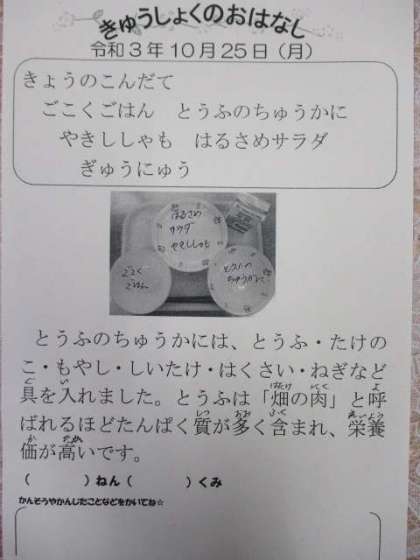 きゅうしょくのおはなし
令和3年10月25日(月)
きょうのこんだて
ごこくごはん とうふのちゅうかに
やきししゃも はるさめサラダ
ぎゅうにゅう
はるさめ
サラダ
やきししゃも
ごこく
ごはん
とうふの
ちゅうかに
とうふのちゅうかには、とうふ・たけの
こ・もやし・しいたけ・はくさい・ねぎなど
具を入れました。とうふは「畑の肉」と呼
ばれるほどたんぱく質が多く含まれ、栄養
価が高いです。
( )ねん( )くみ
かんそうやかんじたことなどをかいてね☆